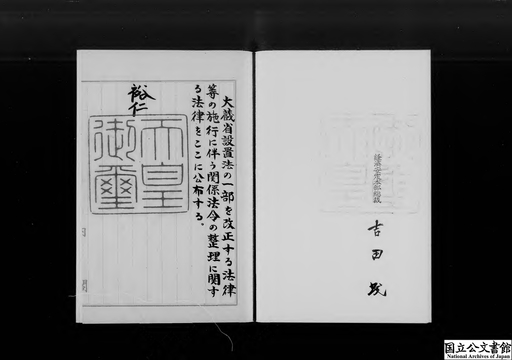 大蔵省設置法の一部を改正する法律
等の施行に伴う関係法令の整理に関す
る法律をここに公布する。
裕仁
天皇御璽
経済安定本部総裁
吉田茂
国立公文書館
National Archives of Japan